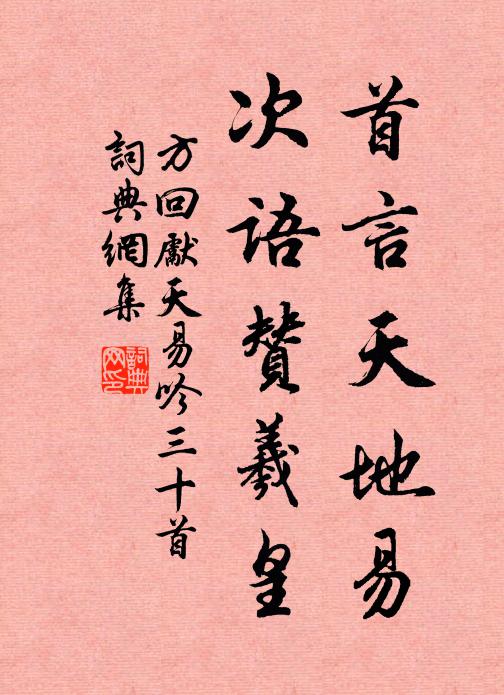 首言天地易
次語賛羲皇
方回獻天易吟三十首
詞典網集
詞典
网印